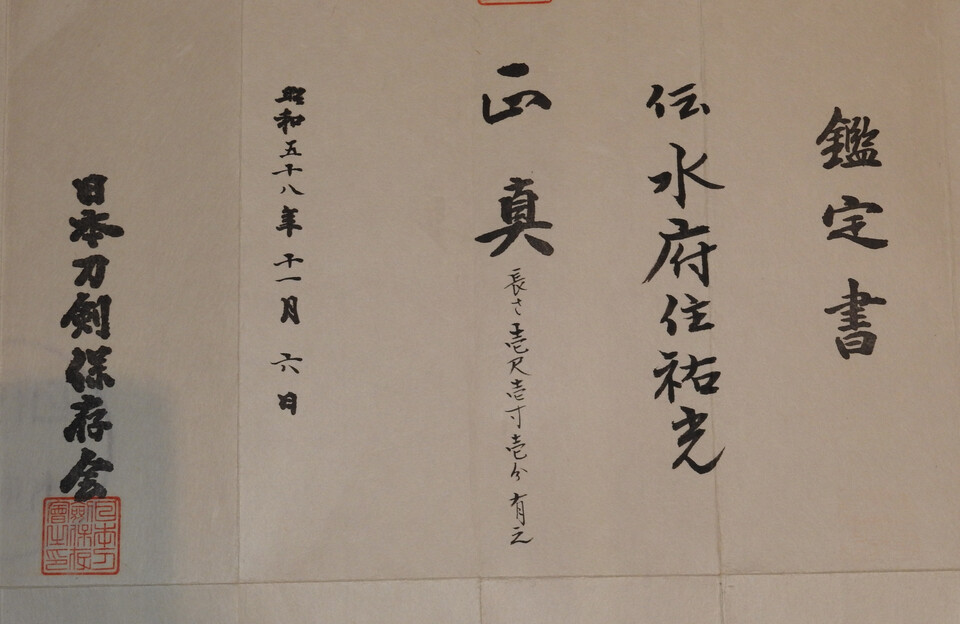 鑑定書
伝水府住祐光
正真
長さ壱尺壱寸壱分有之
昭和五十八年十一月六日
日本刀剣保存会